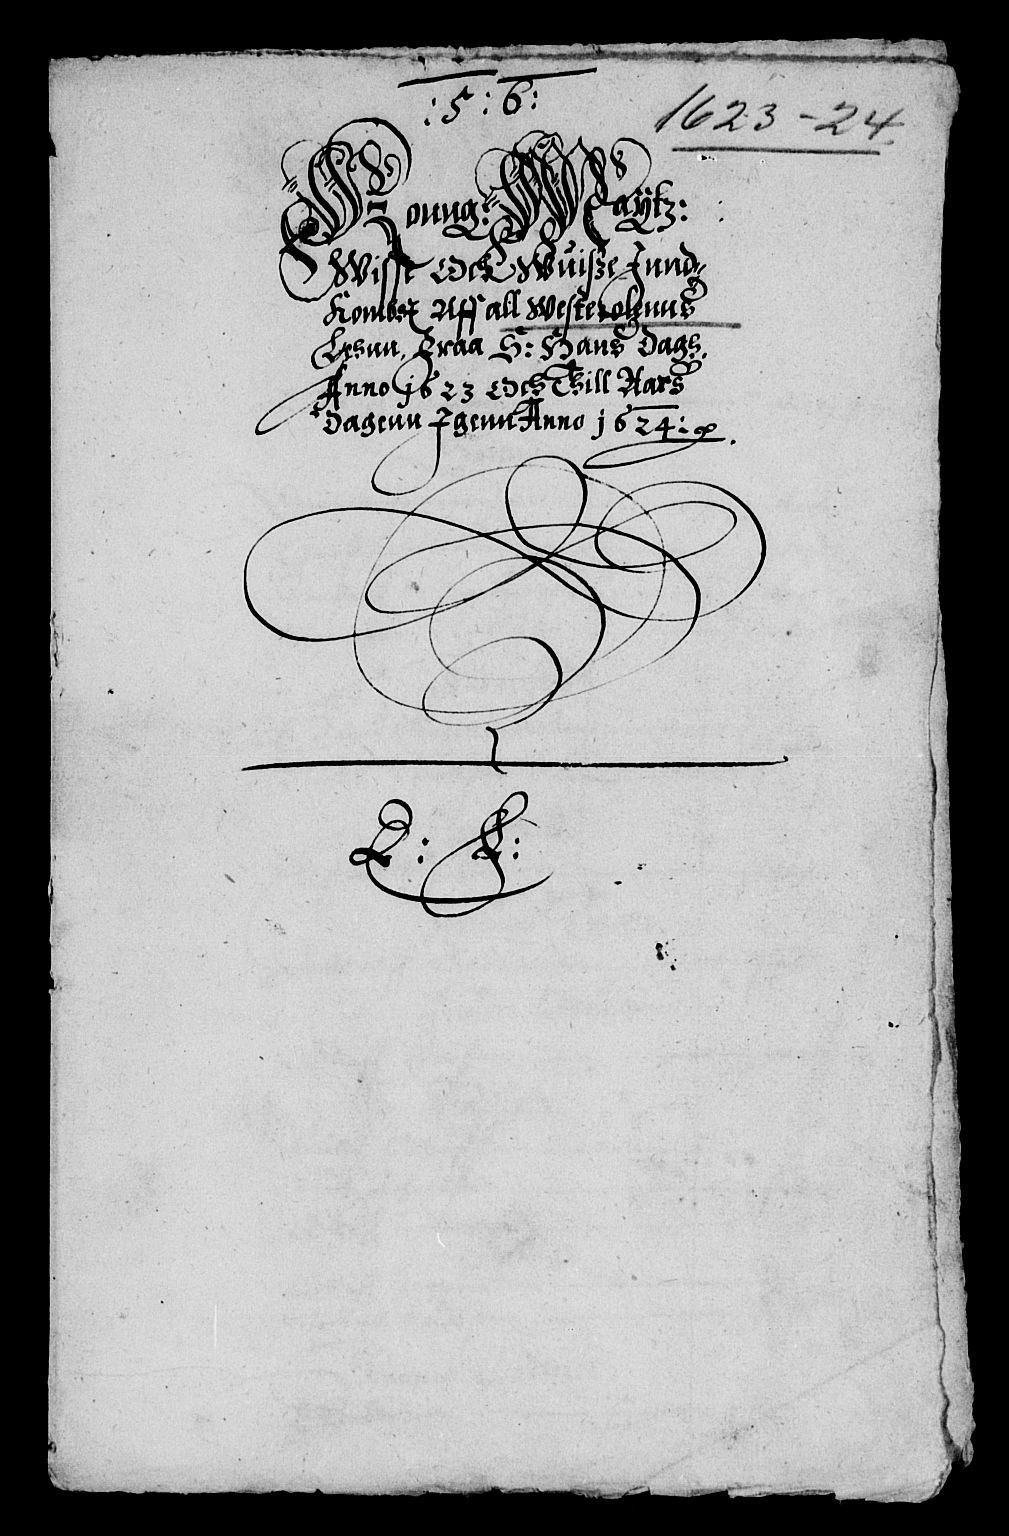 :5:6:
1623-24.
Konng: Maytz:
Wisse Och Wuisze Innd-
Kombst Aff all Westerolenns
Lehnn, Fraa S: Hans Dags
Anno 1623 Och Thill Aars
Dagenn Igenn Anno 1624:
L: K: